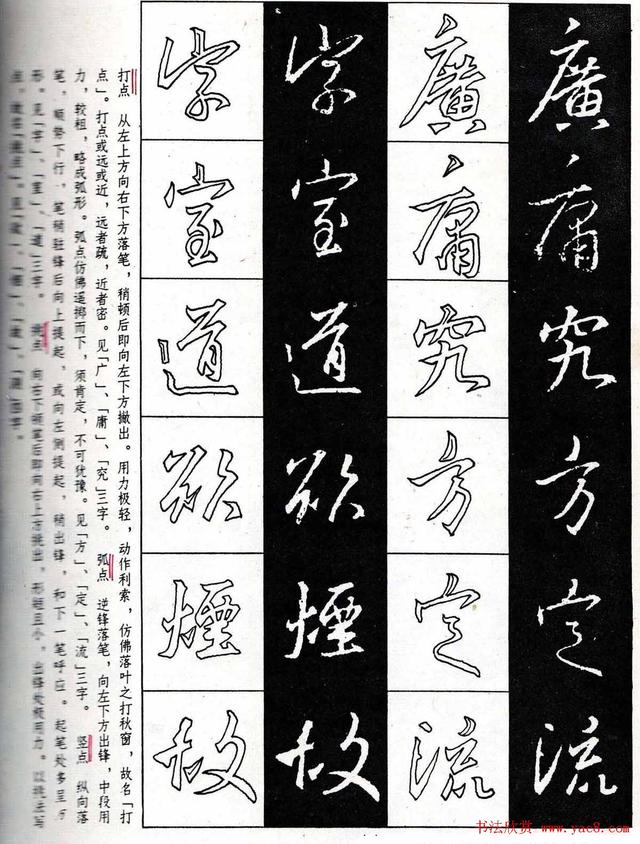 廣庸究方定流
廣庸究方定流
字室道欲煙故
字室道欲煙故
打点 从左上方向右下方落笔，稍顿后即向左下方撇出。用力极轻，动作利索，仿佛落叶之打秋窗，故名「打
点」。打点或远或近，远者疏，近者密。见「广」、「庸」、「究」三字。 弧点 逆锋落笔，向左下方出锋，中段用
力，较粗，略成弧形。弧点仿佛遥掷而下，须肯定，不可犹豫。见「方」、「定」、「流」三字。 竖点 纵向落
笔，顺势下行，笔稍驻锋后向上提起，或向左侧提起，稍出锋，和下一笔呼应。起笔处多呈方
形。见「字」、「室」、「道」三字。 挑点 向右下顿笔后即向右上方挑出，形短且小，出锋处极用力。以挑点写
书法欣赏 www.yac8.com